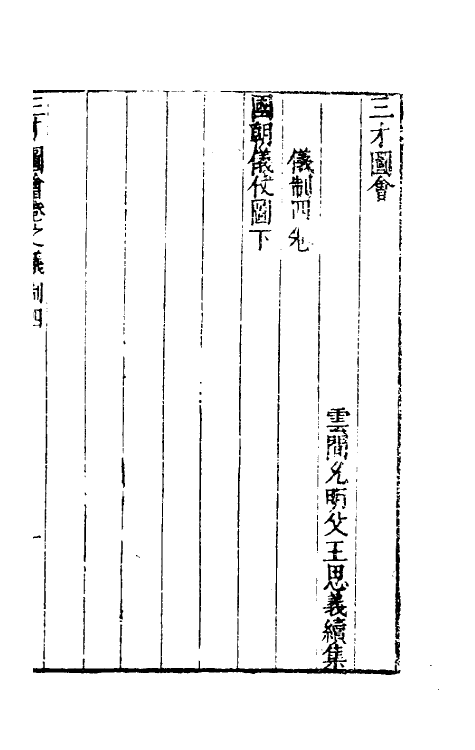 三才圖會
雲間允明父王思義續集
儀制四卷
國朝儀仗圖下
三才圖會卷之儀制四
一